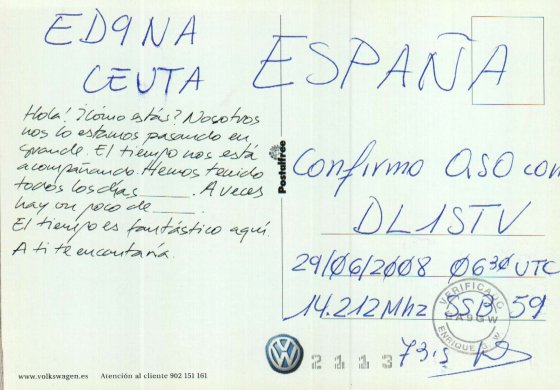 ED9NA
CEUTA
ESPAÑA
Hola! ¿Cómo estás? Nosotros
nos lo estamos pasando en
grande. El tiempo nos está
acompañando. Hemos tenido
todos los días ______. A veces
hay un poco de ______.
El tiempo es fantástico aquí.
A ti te encantaría.
Postalfree
Confirmo QSO con
DL1STV
29/06/2008 0630 UTC
14.212 Mhz SSB 59
73's
VERIFICADO
EA9GW
ENRIQUE
2113
www.volkswagen.es Atención al cliente 902 151 161